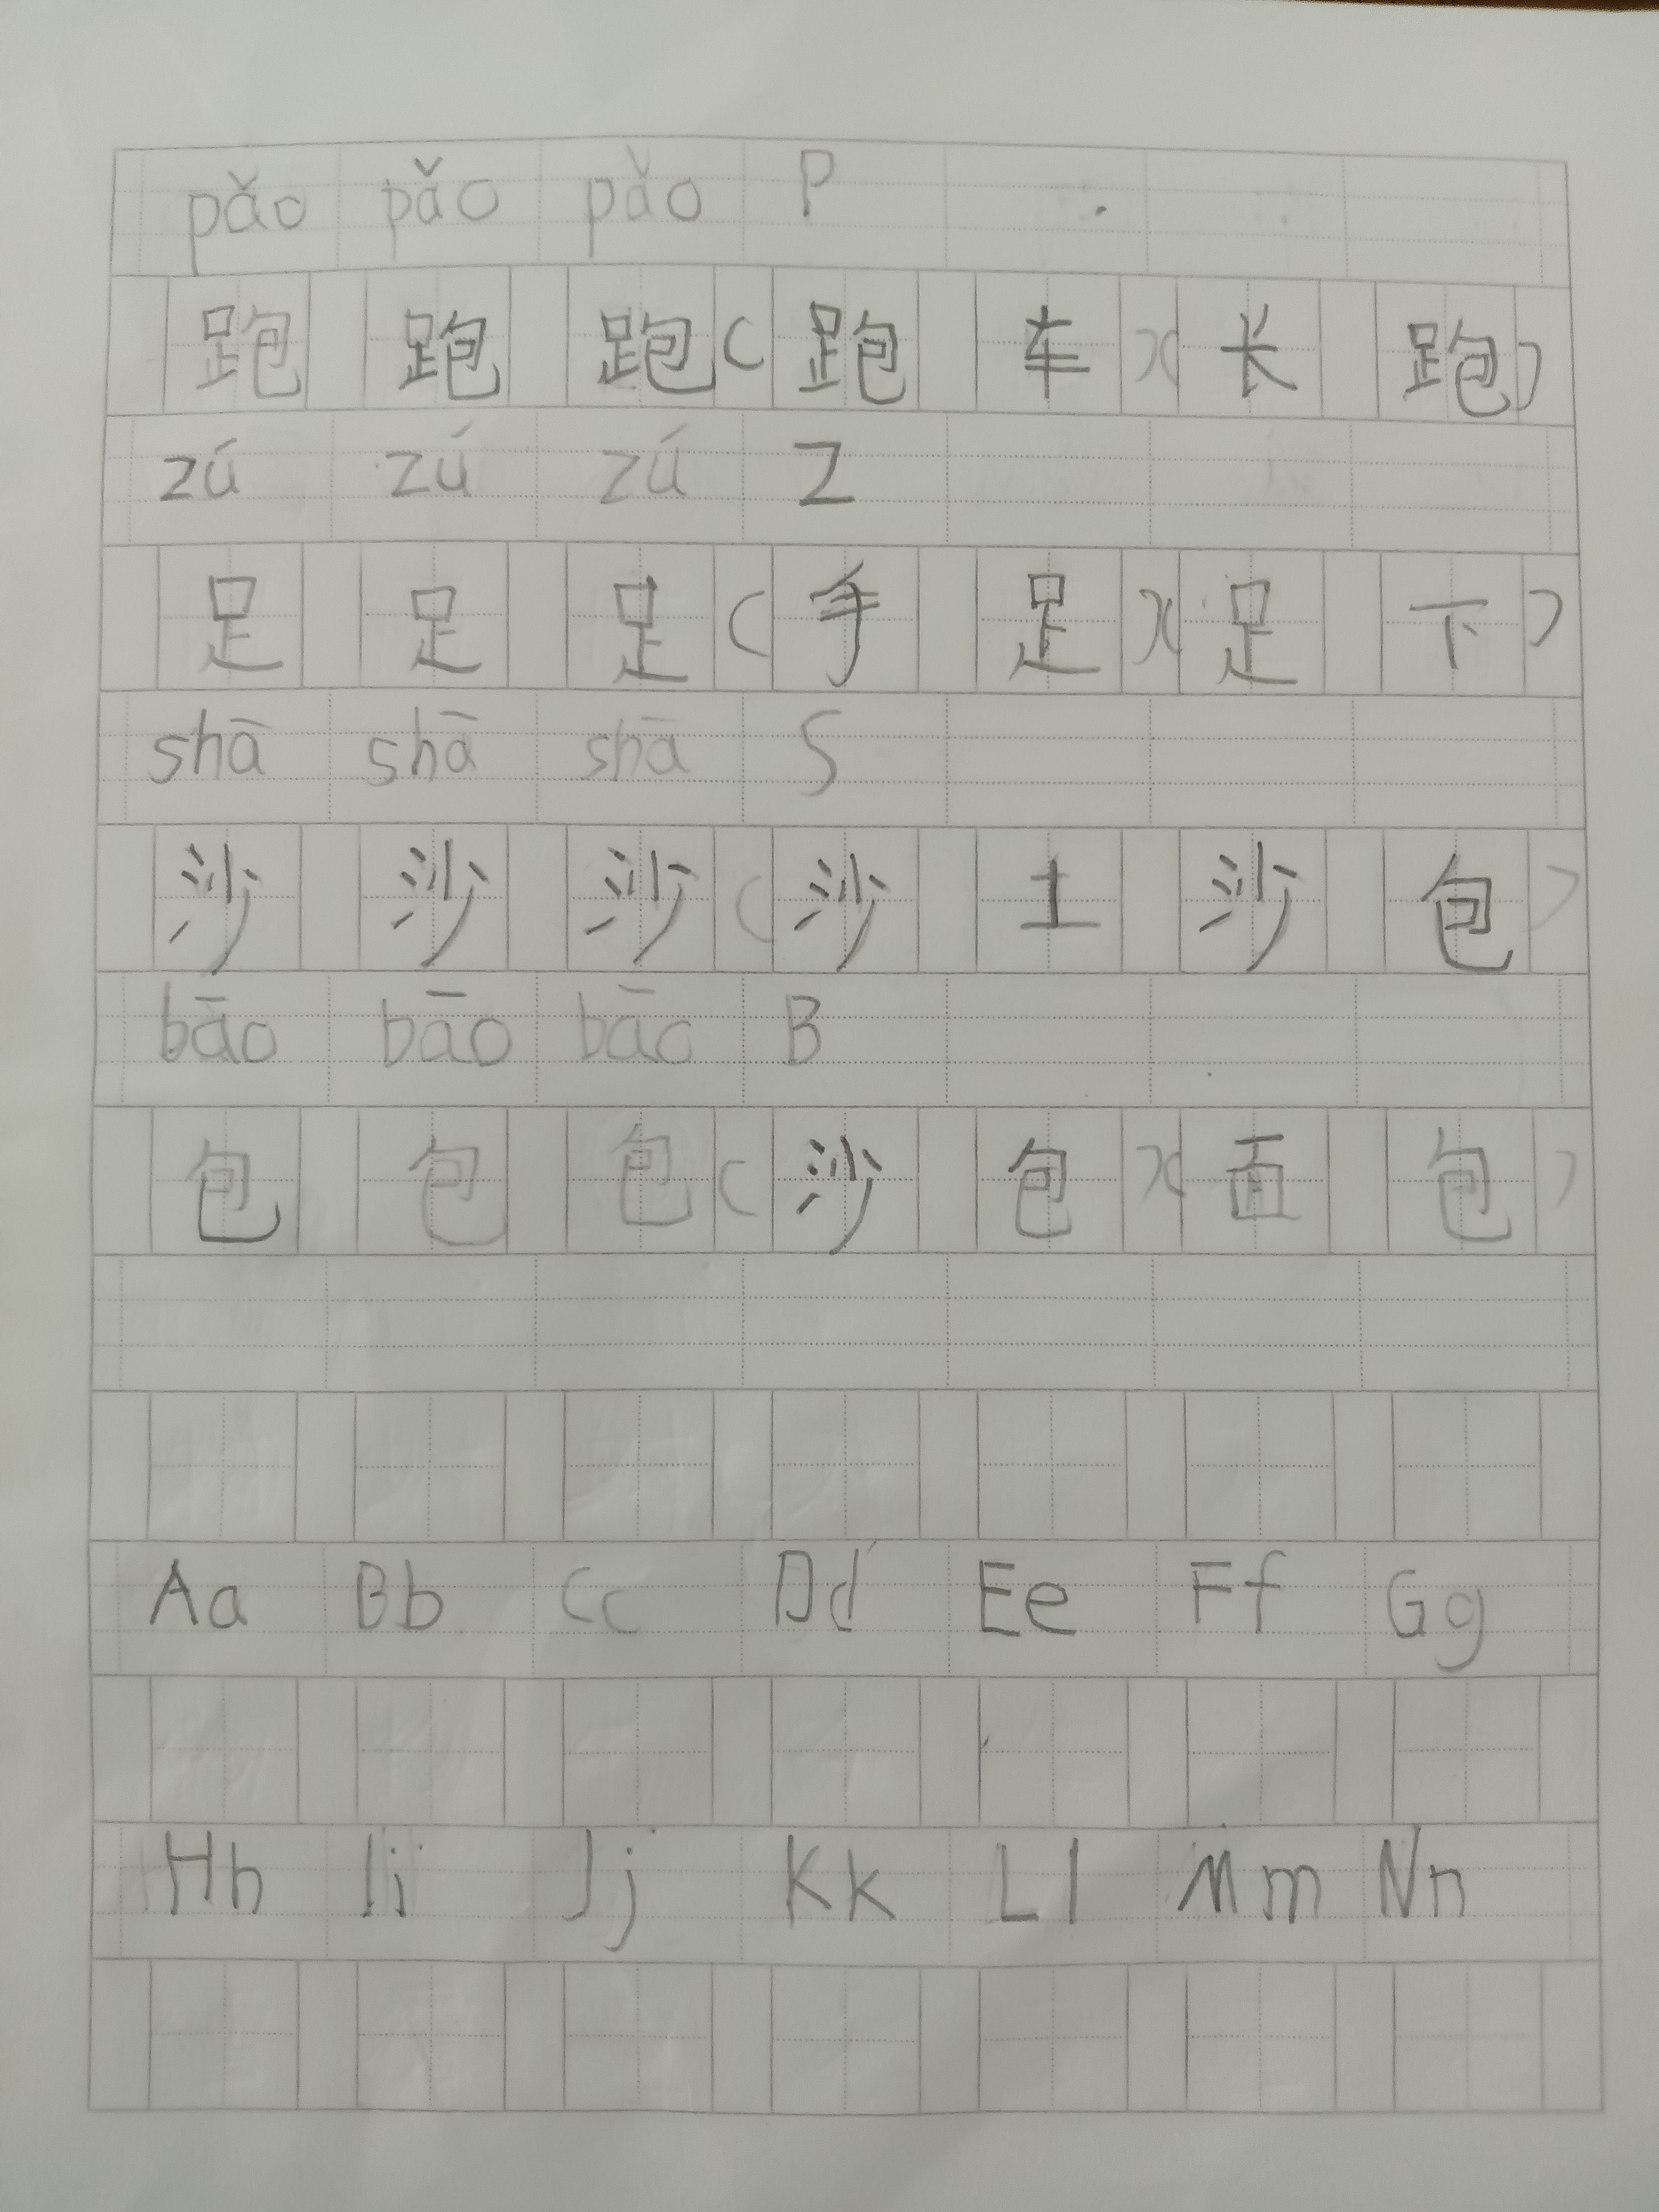 pǎo pǎo pǎo P
跑 跑 跑(跑 车)(长 跑)
zú zú zú Z
足 足 足(手 足)(足 下)
shā shā shā S
沙 沙 沙(沙 土 沙 包)
bāo bāo bāo B
包 包 包(沙 包)(面 包)
Aa Bb Cc Dd Ee Ff Gg
Hh Ii Jj Kk Ll Mm Nn